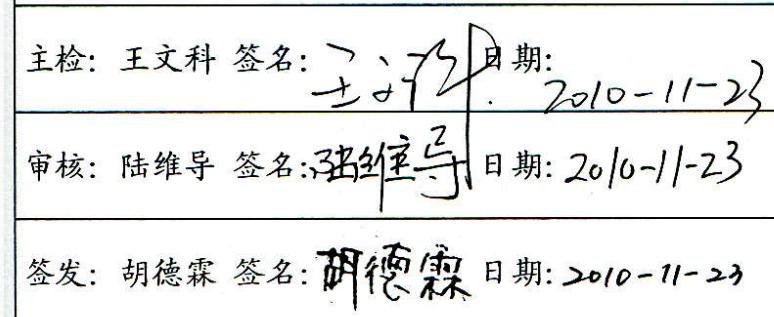 主检: 王文科 签名: 王文科 日期: 2010-11-23
审核: 陆维导 签名: 陆维导 日期: 2010-11-23
签发: 胡德霖 签名: 胡德霖 日期: 2010-11-23